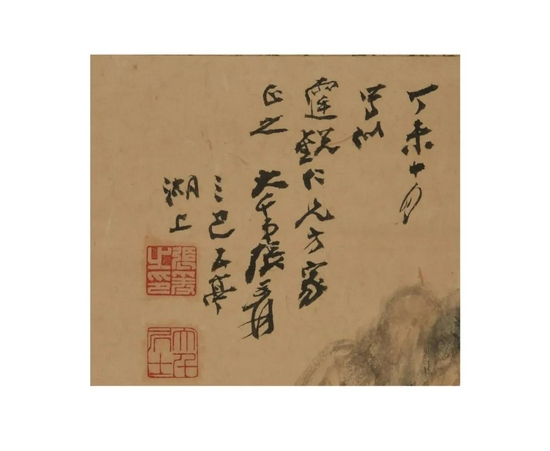 丁未十月
写似
霆銳仁兄方家
正之 大千弟張爰
三巴五亭
湖上
張爰之印
大千居士